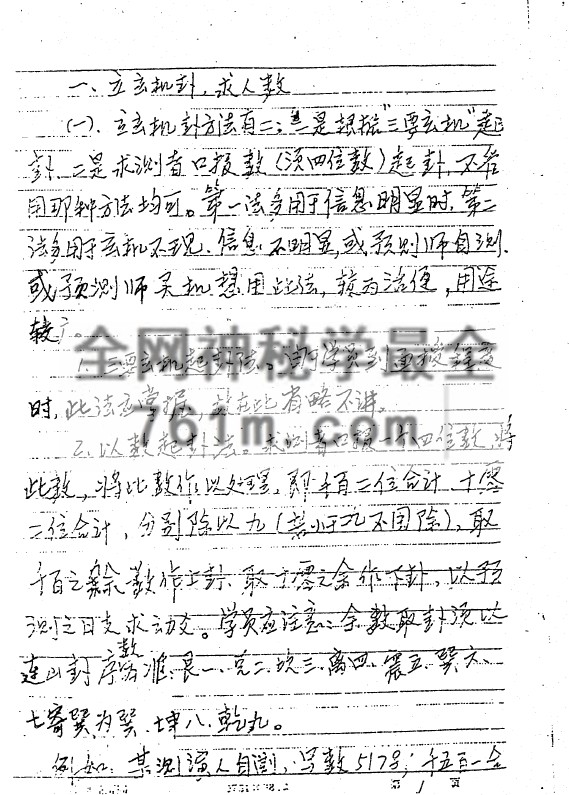 一、立玄机卦，求人数
(一)、立玄机卦方法有二：一是根据“三要玄机”起
卦、二是求测者口报数（须四位数）起卦，不管
用那种方法均可。第一法多用于信息明显时，第二
法多用于玄机不现、信息不明显，或预测师自测、
或预测师灵机想用此法，较为洁便，用途
较广。
1. 三要玄机起卦法。由于学员到面授程度
时，此法应掌握，故在此省略不讲。
二、以数起卦法。求测者口报一个四位数，将
此数，将此数作以处理，即千百二位合计，十零
二位合计，分别除以九（若小于九不用除），取
千百之余数作上卦、取十零之余作下卦，以预
测之日支求动爻。学员应注意：余数取卦须以
连山卦序数为准，艮一、兑二、坎三、离四、震五、巽六、
七寄巽为巽、坤八、乾九。
例如：某测演人自测，写数517，千五百一合
全网神秘学最全
761m.com